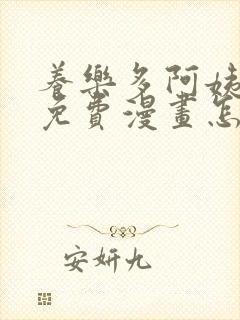 養樂多阿姨
免費漫畫怎
安妍九